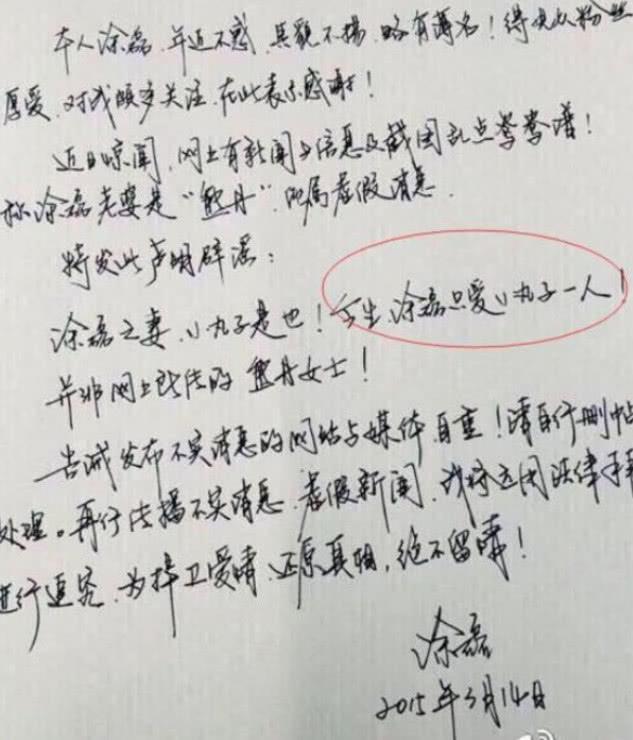 本人涂磊,年近不惑,其貌不扬,略有薄名!得大众粉丝
厚爱,对我颇多关注,在此表示感谢!
近日惊闻,网上有新闻与信息及截图乱点鸳鸯谱!
称涂磊老婆是“甄丹”,纯属虚假消息.
特发此声明辟谣:
涂磊之妻,小丸子是也!今生,涂磊只爱小丸子一人!
并非网上所传的甄丹女士!
告诫发布不实消息的网站与媒体,自重!请自行删帖
处理。再行传播不实消息、虚假新闻,我将运用法律手段
进行追究,为捍卫爱情,还原真相,绝不留情!
涂磊
2015年3月14日